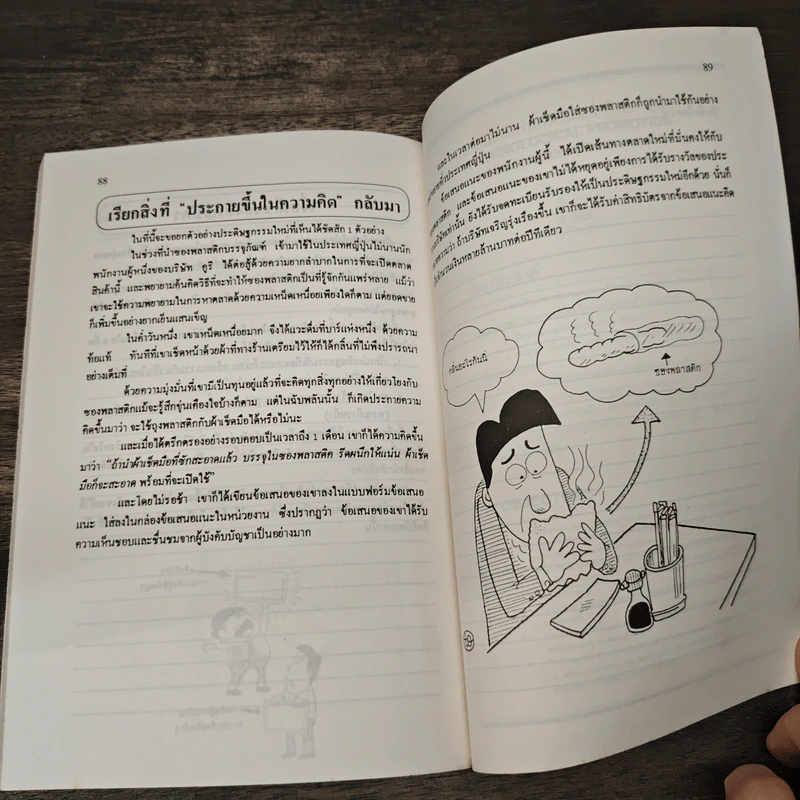 88
เรียกสิ่งที่ “ประกายขึ้นในความคิด” กลับมา
ในที่นี้จะขอยกตัวอย่างประดิษฐกรรมใหม่ที่เห็นได้ชัดสัก 1 ตัวอย่าง
ในช่วงที่นำซองพลาสติกบรรจุภัณฑ์ เข้ามาใช้ในประเทศญี่ปุ่นไม่นานนัก
พนักงานผู้หนึ่งของบริษัท ยูริ ได้ต่อสู้ด้วยความยากลำบากในการที่จะเปิดตลาด
สินค้านี้ และพยายามค้นคิดวิธีที่จะทำให้ซองพลาสติกเป็นที่รู้จักกันแพร่หลาย แม้ว่า
เขาจะใช้ความพยายามในการหาตลาดด้วยความเหน็ดเหนื่อยเพียงใดก็ตาม แต่ยอดขาย
ก็เพิ่มขึ้นอย่างยากเย็นแสนเข็ญ
ในค่ำวันหนึ่ง เขาเหนื่อยเหนื่อย จึงได้แวะดื่มที่บาร์แห่งหนึ่ง ด้วยความ
ท้อแท้ ทันทีที่เขาเช็ดหน้าด้วยผ้าที่ทางร้านเตรียมไว้ให้ก็ได้กลิ่นที่ไม่พึงปรารถนา
อย่างเต็มที่
ด้วยความมุ่งมั่นที่เขามีเป็นทุนอยู่แล้วที่จะคิดทุกสิ่งทุกอย่างให้เกี่ยวโยงกับ
ซองพลาสติกแม้จะรู้สึกขุ่นเคืองใจบ้างก็ตาม แต่ในฉับพลันนั้น ก็เกิดประกายความ
คิดขึ้นมาว่า จะใช้ถุงพลาสติกกับผ้าเช็ดมือได้หรือไม่นะ
และเมื่อได้ตรึกตรองอย่างรอบคอบเป็นเวลาถึง 1 เดือน เขาก็ได้ความคิดขึ้น
มาว่า “ถ้านำผ้าเช็ดมือที่ซักสะอาดแล้ว บรรจุในซองพลาสติค รีดผนึกให้แน่น ผ้าเช็ด
มือก็จะสะอาด พร้อมที่จะเปิดใช้”
และโดยไม่รอช้า เขาก็ได้เขียนข้อเสนอของเขาลงในแบบฟอร์มข้อเสนอ
แนะ ใส่ลงในกล่องข้อเสนอแนะในหน่วยงาน ซึ่งปรากฏว่า ข้อเสนอของเขาได้รับ
ความเห็นชอบและชื่นชมจากผู้บังคับบัญชาเป็นอย่างมาก
89
และในเวลาต่อมาไม่นาน ผ้าเช็ดมือใส่ซองพลาสติกก็ถูกนำมาใช้กันอย่าง
ทั่วประเทศญี่ปุ่น
ข้อเสนอแนะของพนักงานผู้นี้ ได้เปิดเส้นทางตลาดใหม่ที่มั่นคงให้กับ
และข้อเสนอแนะของเขาไม่ได้หยุดอยู่เพียงการได้รับรางวัลของบริ
เท่านั้น ยังได้รับจดทะเบียนรับรองให้เป็นประดิษฐกรรมใหม่อีกด้วย นั่นก็
ความว่า ถ้าบริษัทเจริญรุ่งเรืองขึ้น เขาก็จะได้รับค่าสิทธิบัตรจากข้อเสนอแนะคิด
จำนวนเงินหลายล้านบาทต่อปีทีเดียว
กลิ่นอะไรกันนี่
ซองพลาสติก